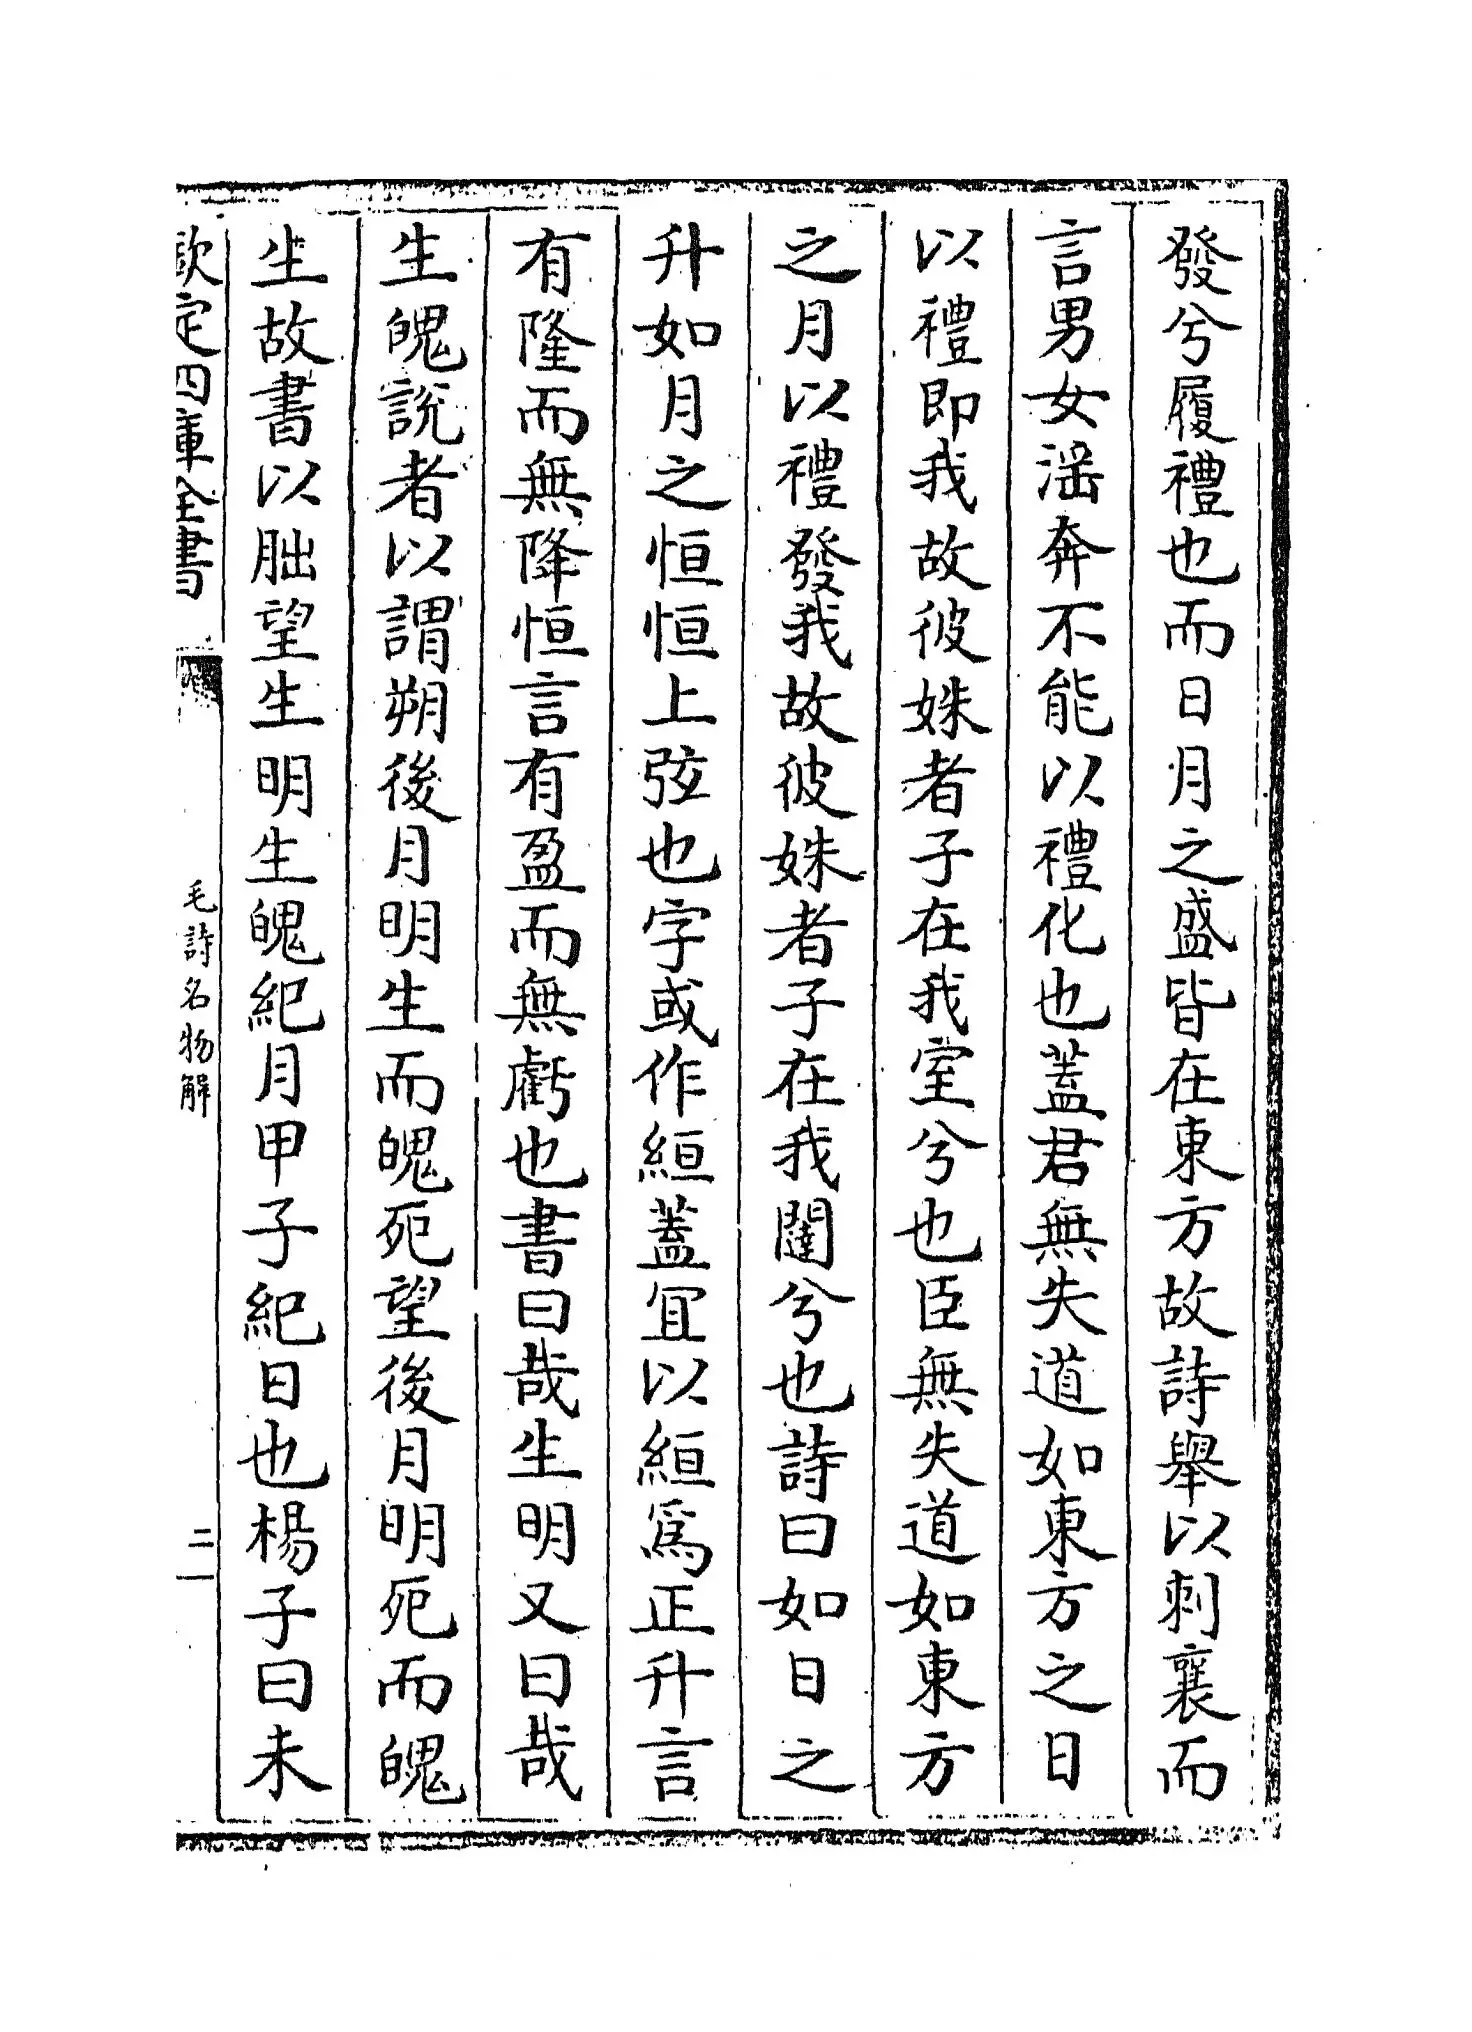 發兮履禮也而日月之盛皆在東方故詩舉以刺襄而
言男女淫奔不能以禮化也蓋君無失道如東方之日
以禮即我故彼姝者子在我室兮也臣無失道如東方
之月以禮發我故彼姝者子在我闥兮也詩曰如日之
升如月之恒恒上弦也字或作絙蓋宜以絙為正升言
有隆而無降恒言有盈而無虧也書曰哉生明又曰哉
生魄說者以謂朔後月明生而魄死望後月明死而魄
生故書以朏望生明生魄紀月甲子紀日也楊子曰未
欽定四庫全書
毛詩名物解
二